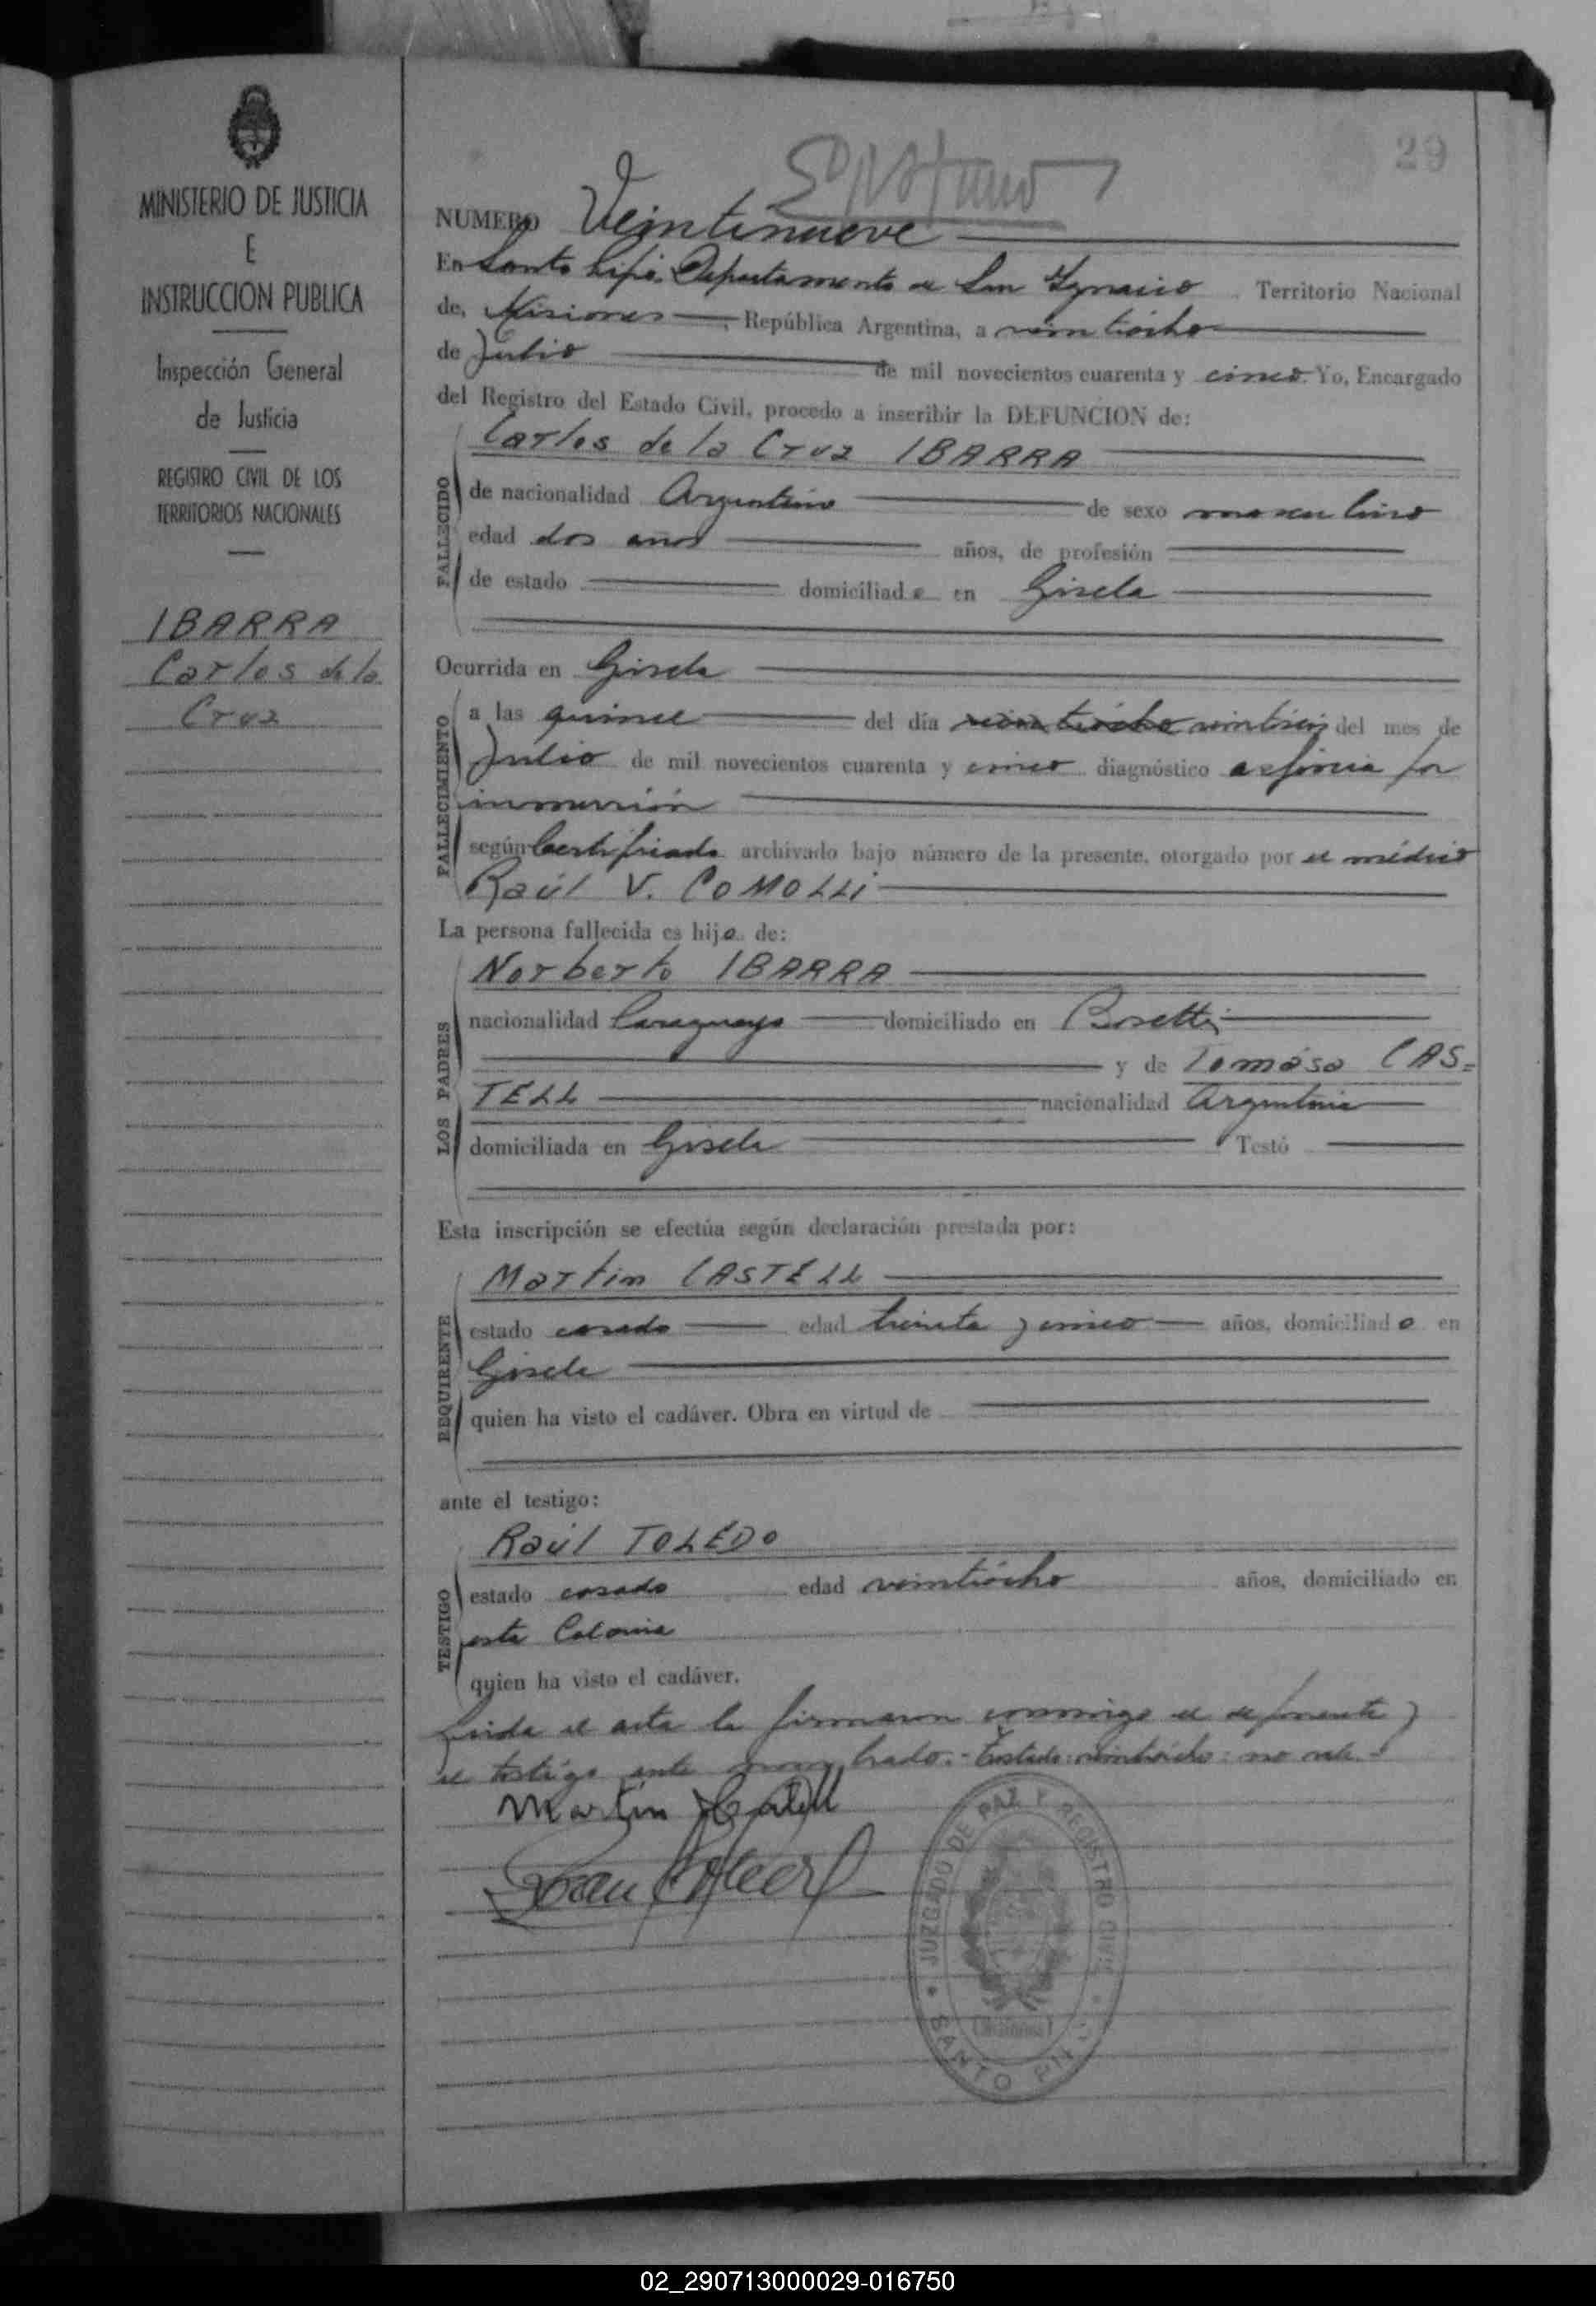 MINISTERIO DE JUSTICIA
E
INSTRUCCION PUBLICA
Inspección General
de Justicia
REGISTRO CIVIL DE LOS
TERRITORIOS NACIONALES
IBARRA
Carlos de la
Cruz
29
NUMERO Veintinueve
En Santo Pipó. Departamento de San Ygnacio Territorio Nacional
de, Misiones, República Argentina, a veintiocho
de Julio de mil novecientos cuarenta y cinco. Yo, Encargado
del Registro del Estado Civil, procedo a inscribir la DEFUNCION de:
FALLECIDO
Carlos de la Cruz IBARRA
de nacionalidad Argentino de sexo masculino
edad dos años años, de profesión
de estado domiciliado en Gisela
Ocurrida en Gisela
FALLECIMIENTO
a las quince del día veintiocho veintiseis del mes de
Julio de mil novecientos cuarenta y cinco diagnóstico asfixia por
inmersión
según Certificado archivado bajo número de la presente, otorgado por el médico
Raúl V. COMOLLi
La persona fallecida es hijo de:
LOS PADRES
Norberto IBARRA
nacionalidad Paraguayo domiciliado en Bosetti
y de Tomása CAS=
TELL nacionalidad Argentina
domiciliada en Gisela Testó
Esta inscripción se efectúa según declaración prestada por:
REQUIRENTE
Martin CASTELL
estado casado edad treinta y cinco años, domiciliado en
Gisela
quien ha visto el cadáver. Obra en virtud de
ante el testigo:
TESTIGO
Raúl TOLEDO
estado casado edad veintiócho años, domiciliado en
esta Colonia
quien ha visto el cadáver.
Leida el acta la firmaron conmigo el deponente y
el testigo ante nombrado.- Testado: veintiocho: no vale.-
Martin Castell
JUZGADO DE PAZ Y REGISTRO CIVIL
SANTO PIPÓ
(Misiones)
02_290713000029-016750